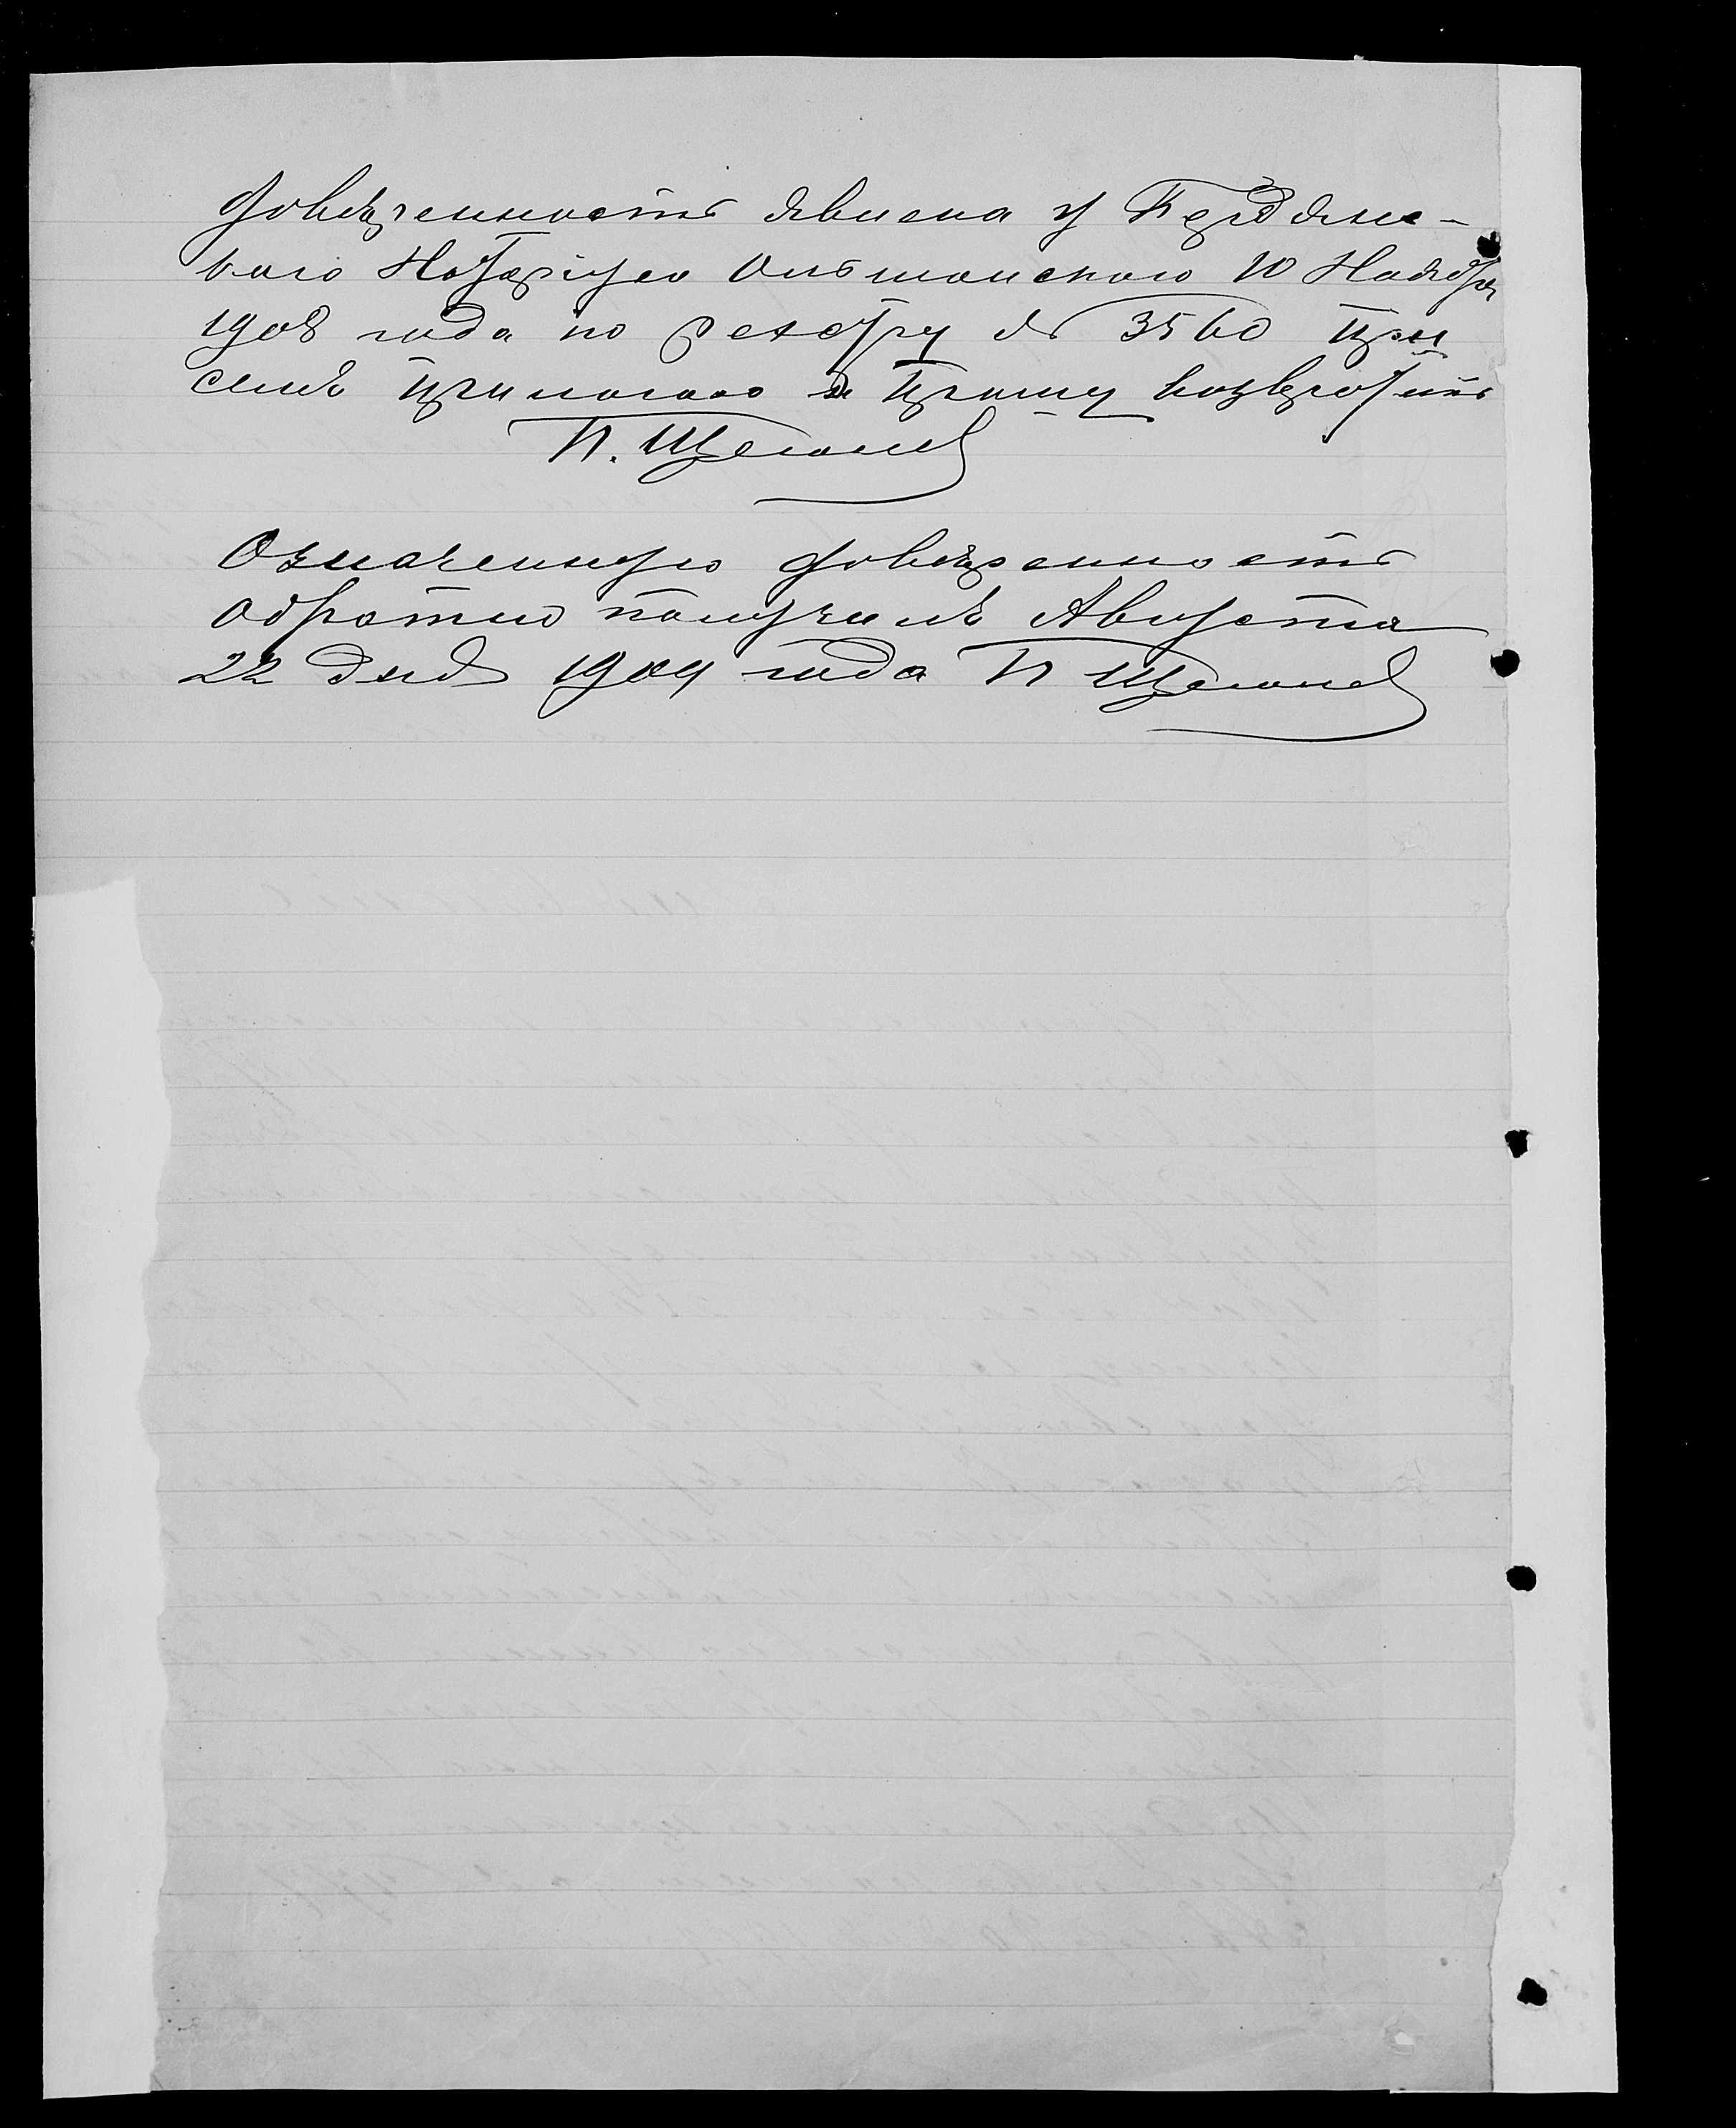 Довѣренность явлена у Бердянс-
каго Нотаріуса Ольшанскаго 10 Ноября
1908 года по реестру № 3560 при
семъ прилагаю и прошу возвратить
П. Щеголев
Означенную довѣренность
обратно получилъ Августа
22 дня 1909 года П Щеголев